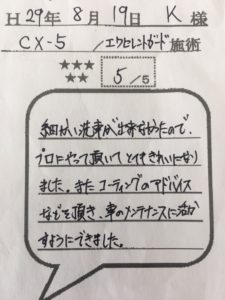 H29年8月19日 K 様
CX-5 /エクセレントガード施術
★★★
★★
5/5
細かい洗車が出来なかったので、
プロにやって頂いてとてもきれいになり
ました。またコーティングのアドバイス
などを頂き、車のメンテナンスに活か
すようにできました。